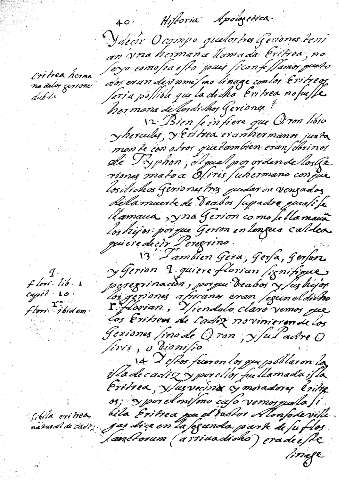 40 Historia Apologetica
Y decir Ocampo que los tres Geriones teni
an vna hermana llamada Eritrea, no
soy en contra esto pues si confesamos
eran de vn mismo linage con los Eritreos
seria posible que la dicha Eritrea no fuesse
hermana de los dichos Geriones?
Eritrea herma
na de los gerione
12 Bien se infiere que Oron libio
y hercules, y Eritrea eran hermanos junta
mente con otros que tambien eran sobrinos
de Typhon, el qual por orden de los Ge
riones mato a Osiris su hermano con que
los dichos Geriones tres quedaron vengados
de la muerte de Deabos su padre
llamaua, y no Gerion como se llamauan
los hijos: porque Geron en lengua caldea
quiere decir Peregrino.
13 Tambien Gera, Gersa, Gerson
y Gerion 1. quiere florian signifique
peregrinacion, porque Deabos y sus hijos
los geriones africanos eran segun el dicho
florian, Y siendo claro vemos que
los Eritreos de Cadiz no vinieron de los
Geriones sino de Oron, y su Padre O
siris, o Dionisio
1
flori. lib. 1
capit. 10.
flori. ibidem.
14 Y estos fueron los que poblaron la
isla de cadiz y por ellos fue llamada isla
Eritrea, y sus vecinos y moradores Eritre
os; y por el mismo caso vemos que la Si
bila Eritrea que el Doctor Alonso de Ville
gas dice en la segunda parte de su flos
sanctorum (arriua dicho) era de este
linage
Sibila eritrea
natural de cadiz